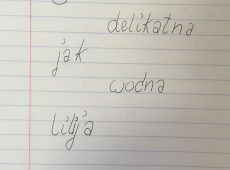 delikatna
jak
wodna
lilija